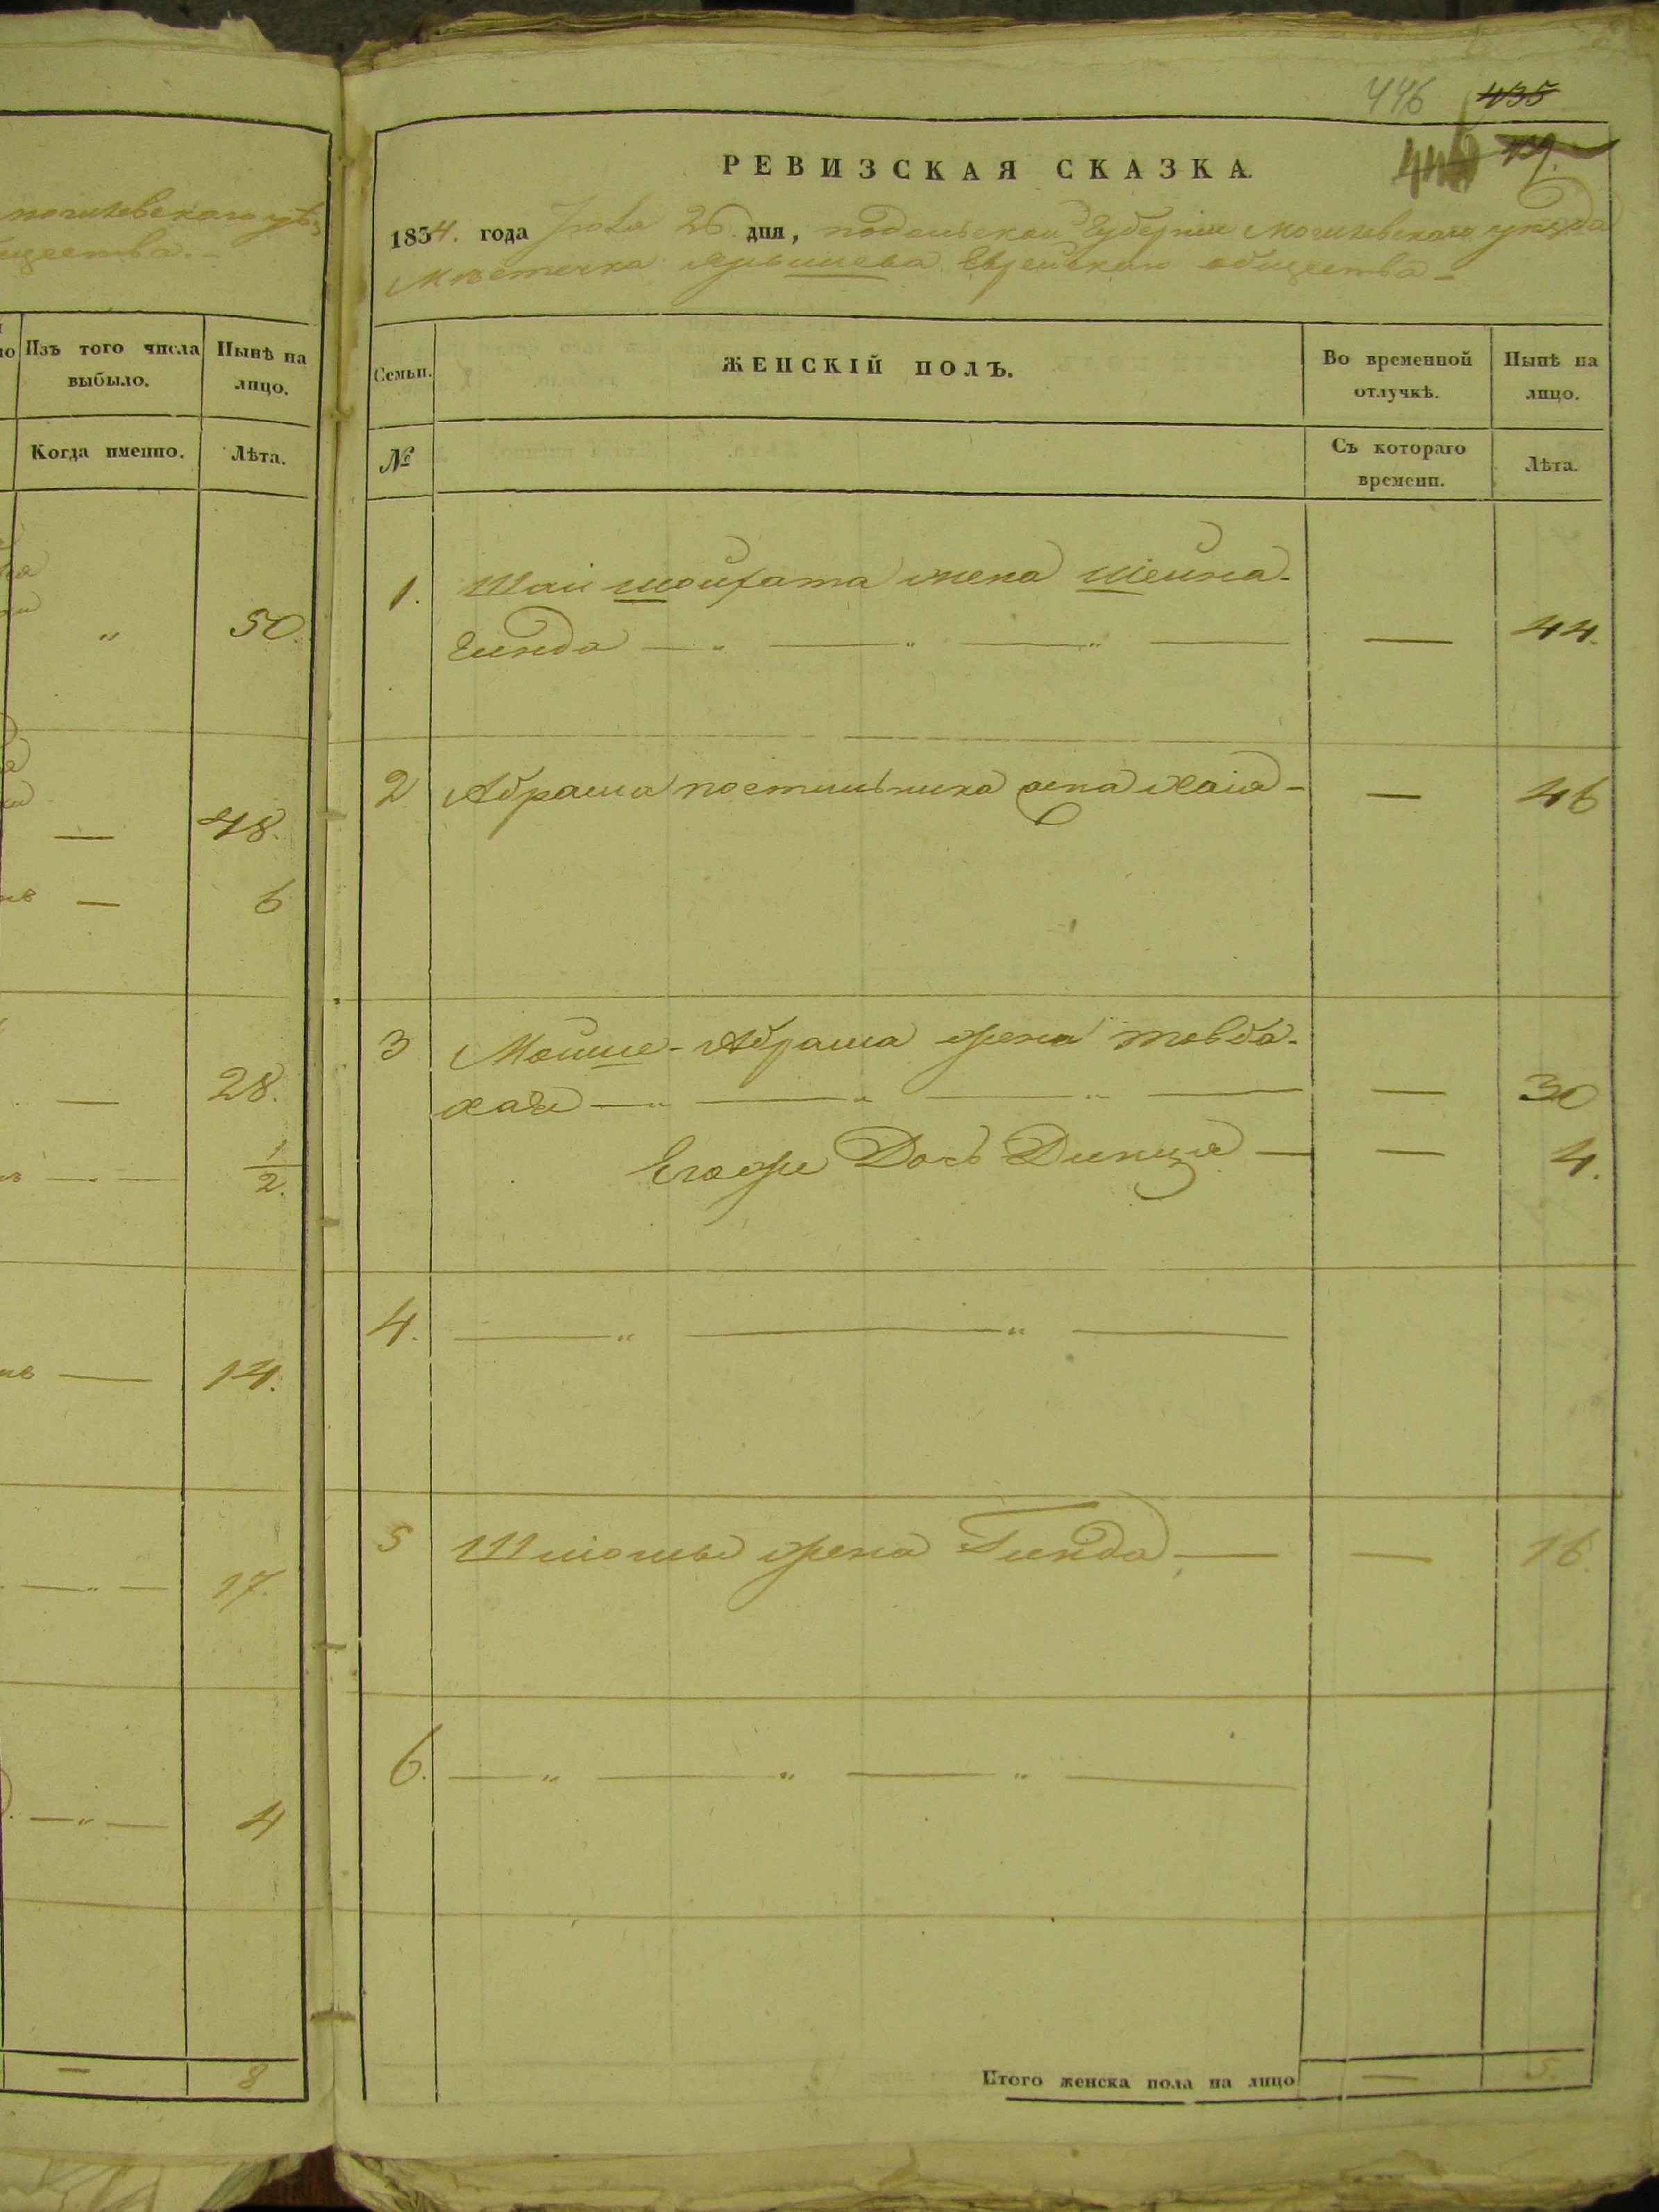 могилевского уѣз
щества.-
Изъ того числа выбыло.
Нынѣ на лицо.
Когда именно.
Лѣта.
„ 50.
— 48.
— 6
— 28.
— 1/2.
— 14.
— „ — 17.
— „ — 4
— 8
446 435
РЕВИЗСКАЯ СКАЗКА.
1834. года 26 дня, подольской Губерніи Могилевскаго уѣзда
Мѣстечка Ярышева Еврейскаго общества -
Семьи.
ЖЕНСКІЙ ПОЛЪ.
Во временной отлучкѣ.
Нынѣ на лицо.
№
Съ котораго времени.
Лѣта.
1. жена Шейна- — 44.
2 Абрама постильника жена Хаія - — 46
3 Мошше-Абрама жена
хая — „ — „ — „ — — 30
Егоже Дочь — — 4.
4. — „ — „ —
5 жена Гинда — — 16.
6. — „ — „ — „ —
Итого женска пола на лицо — 5.